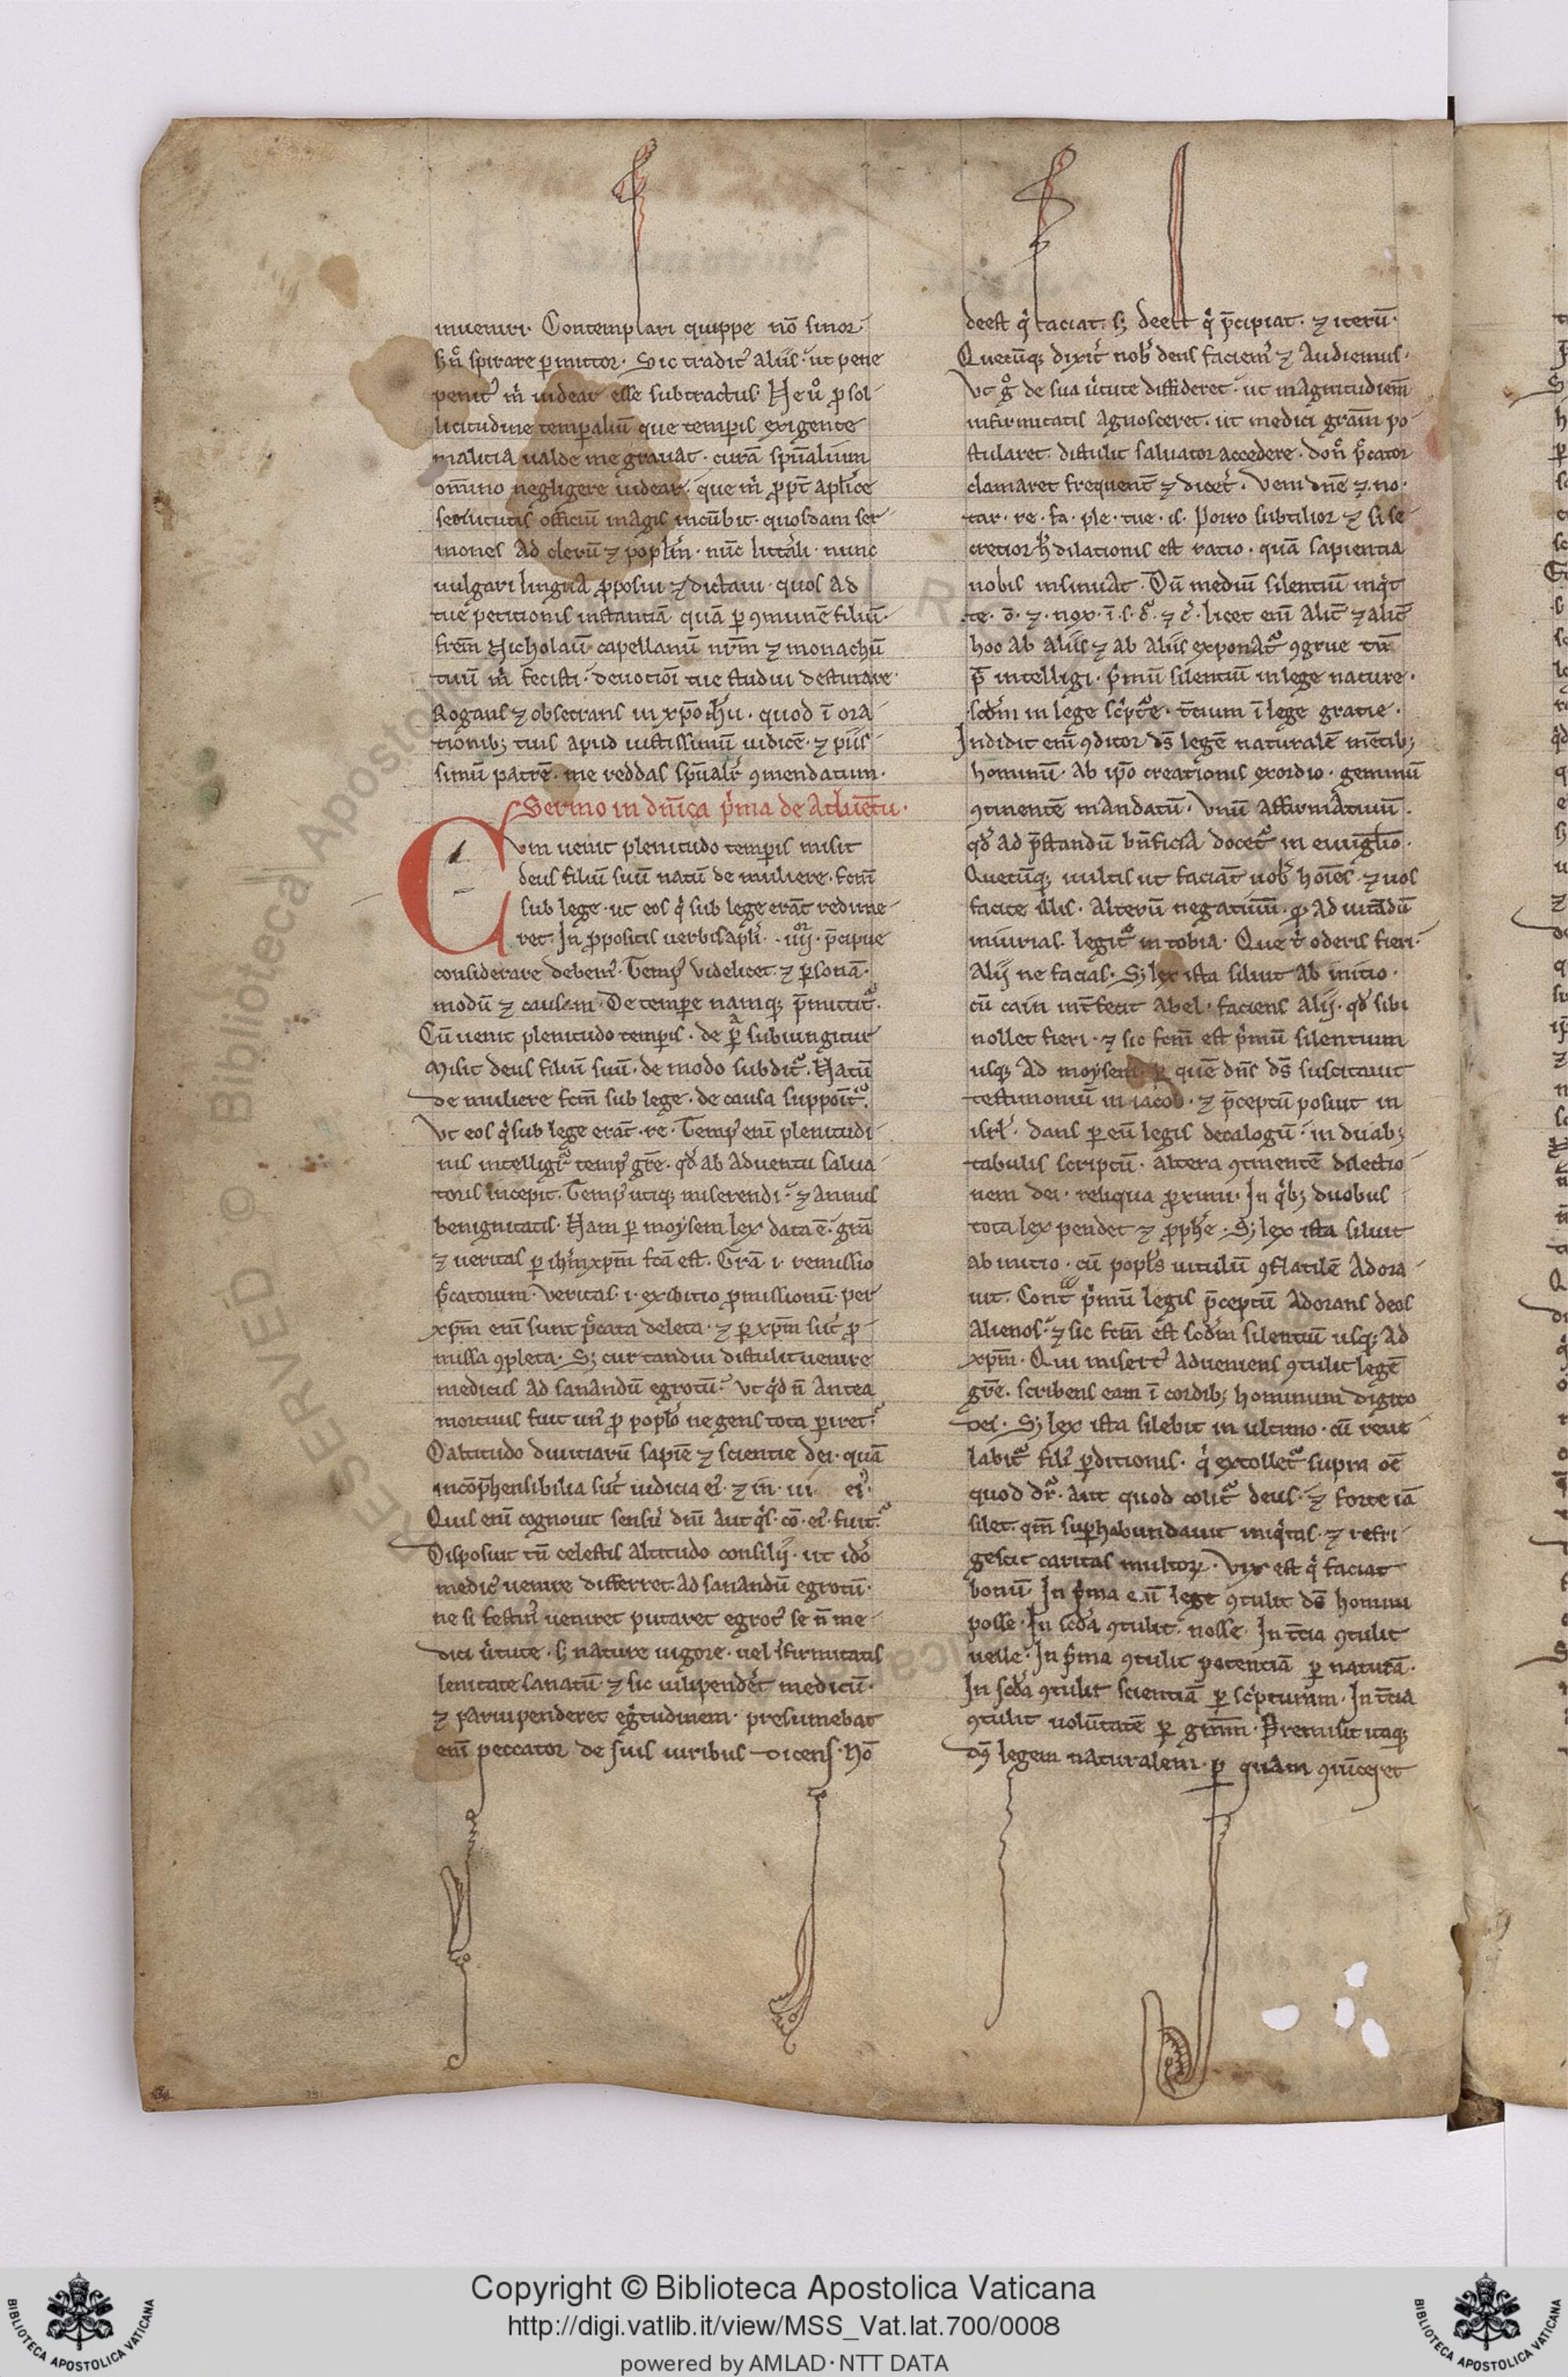 inueniri. Contemplari quippe nō sinor
hn̄ spirare ꝑmittor. Sic tradit᷒ aliis ut pene
penit᷒ m̍ videar esse subtractus. Ne ů ꝓ sol
licitudine temꝑaliū que tempis exigente
malicia ualde me grauat. curā spūalium
om̄ino negligere uidear. que m̍ ꝓpt̄ apl̄ice
seruitutis officiū magis incūbit. quosdam ser
mones ad clerū ⁊ popl̄m. nūc litt̄ali. nunc
uulgari lingua ꝓposui ⁊ dictaui. quos ad
tue petitionis instantiā quā ꝑ ꝯmunē filiū.
frēm Nicholaū capellanū nr̄m ⁊ monachū
tuū m̍ fecisti. deuotiōi tue studui destinare.
Rogans ⁊ obsecrans in xp̄o ih̄u. quod ī ora
tionibꝫ tuis apud iustissimū iudicē. ⁊ piis
simū patrē. me reddas spūalit̄ ꝯmendatum.
Sermo in dn̄ica p̍ma de Aduētu.
Cum uenit plenitudo tempis misit
deus filiū suū natū de muliere. fc̄m
sub lege. ut eos q̍ sub lege erāt redime
ret. In ꝓpositis uerbis apl̄i. .iiij. p̄cipue
considerare debem᷒. Temp᷒ videlicet. ⁊ ꝑsonā.
modū ⁊ causam. De tempe namqꝫ p̄mittit᷑.
Cū uenit plenitudo tempis. de ꝑa subiungitur
Misit deus filiū suū. de modo subdit᷑. Natū
de muliere fc̄m sub lege. de causa suppoīt᷑.
Vt eos q̍ sub lege erāt. re. Temp᷒ eni plenitudi
nis intelligit᷑ temp᷒ gr̄e. qd̄ ab aduentu salua
toris incepit. Temp᷒ utiqꝫ miserendi. ⁊ annus
benignitatis. Nam ꝑ moysem lex data ē. gr̄a
⁊ ueritas ꝑ ih̄m xp̄m fc̄a est. Gr̄a .i. remissio
p̄ccatorum. ueritas .i. exibitio ꝓmissionū. per
xp̄m eni sunt p̄ccata deleta. ⁊ ꝑ xp̄m sūt ꝓ
missa ꝯpleta. Sꝫ cur tandiu distulit uenire
medicus ad sanandū egrotū. Vt q̍d n̄ antea
mortuus fuit un᷒ ꝓ popl̄o ne gens tota ꝑiret.
O altitudo diuitiarū sapīe ⁊ scientie dei. quā
incōp̄hensibilia sūt iudicia ei᷒. ⁊ in. ui. ei᷒.
Quis enī cognouit sensū dn̄i aut q̍s. cō. ei᷒. fuit.
Disposuit tn̄ celestis altitudo consilij. ut ido̍
medic᷒ uenire differret ad sanandū egrotū.
ne si festin᷒ ueniret putaret egrot᷒ se n̄ me
dici u̍tute. sꝫ nature uigore. uel īfirmitatis
lenitate sanatū. ⁊ sic uilipenderet medicū.
⁊ paruipenderet eg̍tudinem. presumebat
enī peccator de suis uiribus dicens. Nō
deest q̍ faciat. sꝫ deest q̍ p̄cipiat. ⁊ iterū.
Quecūqꝫ dixit̄ nob̄ deus faciem᷒ ⁊ audiemus.
Vt g̊ de sua u̍tute diffideret. ut magnitudiem̄
infirmitatis agnosceret. ut medici gr̄am po
stularet. distulit saluator accedere. don̄ p̄ccator
clamaret frequent̄ ⁊ dicēt. Veni dn̄e ⁊. no.
tar. re. fa. ple. tue. is. Porro subtilior ⁊ si se
cretior hꝰ dilationis est ratio. quā sapientia
nobis insinuat. Dū mediū silentiū inq̍t
te. ō. ⁊. nox. ī. s. c̄. ⁊ c̄. licet enī alit̄ ⁊ alit̄
hoc ab aliis ⁊ ab aliis exponat᷑ ꝯgrue tn̄
p̄ intelligi. p̍mū silentiū in lege nature.
scd̄m in lege sc̍pt᷑e. t̄cium ī lege gratie.
Indidit enī ꝯditor ds̄ legē naturalē mētibꝫ
hominū. ab ip̄o creationis exordio. geminū
ꝯtinentē mandatū. Vnū affirmatiuū.
qd̄ ad p̄standū bn̄ficia docet᷑ in euuḡlio.
Quecūqꝫ uultis ut faciāt uob̄ hoīes. ⁊ uos
facite illis. Alterū negatiuū. qd̄ ad uitādū
iniurias. legit᷑ in tobia. Que t̍ oderis fieri.
Alij ne facias. Sꝫ lex ista siluit ab initio.
cū cain int̄fecit abel. faciens alij. qd̄ sibi
nollet fieri. ⁊ sic fc̄m est p̍mū silentium
usqꝫ ad moysen. ꝑ quē dn̄s ds̄ suscitauit
testimoniū in iacob. ⁊ p̄ceptū posuit in
isrl̄. dans ꝑ eū legis decalogū. in duabꝫ
tabulis scriptū. altera ꝯtinentē dilectio
nem dei. reliqua ꝓximi. In q̍bꝫ duobus
tota lex pendet ⁊ ꝓphē. Sꝫ lex ista siluit
ab initio. cū popl̄s uitulū ꝯflatilē adora
uit. Cont̄ p̍mū legis p̄ceptū adorans deos
alienos. ⁊ sic fc̄m est scd̄m silentiū usqꝫ ad
xp̄m. Qui misert᷒ adueniens ꝯtulit legē
gr̄e. scribens eam ī cordibꝫ hominum digito
dei. Sꝫ lex ista silebit in ultimo. cū reue
labit᷑ fili᷒ ꝑditionis. q̍ extollet᷑ supra oē
quod dr̄. aut quod colit᷑ deus. ⁊ forte iā
silet. qm̄ suꝑhabundauit iniq̍tas. ⁊ refri
gescit caritas multoꝝ. Vix est q̍ faciat
bonū. In p̍ma enī lege ꝯtulit ds̄ homini
posse. In scd̄a ꝯtulit. nosse. In t̄cia ꝯtulit
uelle. In p̍ma ꝯtulit potenciā ꝑ naturā.
In scd̄a ꝯtulit scientiā ꝑ sc̍pturam. In t̄cia
ꝯtulit uolūtatē ꝑ gr̄am. Premisit itaqꝫ
legem naturalem. ꝑ quam ꝯuīceret
Copyright © Biblioteca Apostolica Vaticana
http://digi.vatlib.it/view/MSS_Vat.lat.700/0008
powered by AMLAD·NTT DATA
BIBLIOTECA APOSTOLICA VATICANA
BIBLIOTECA APOSTOLICA VATICANA